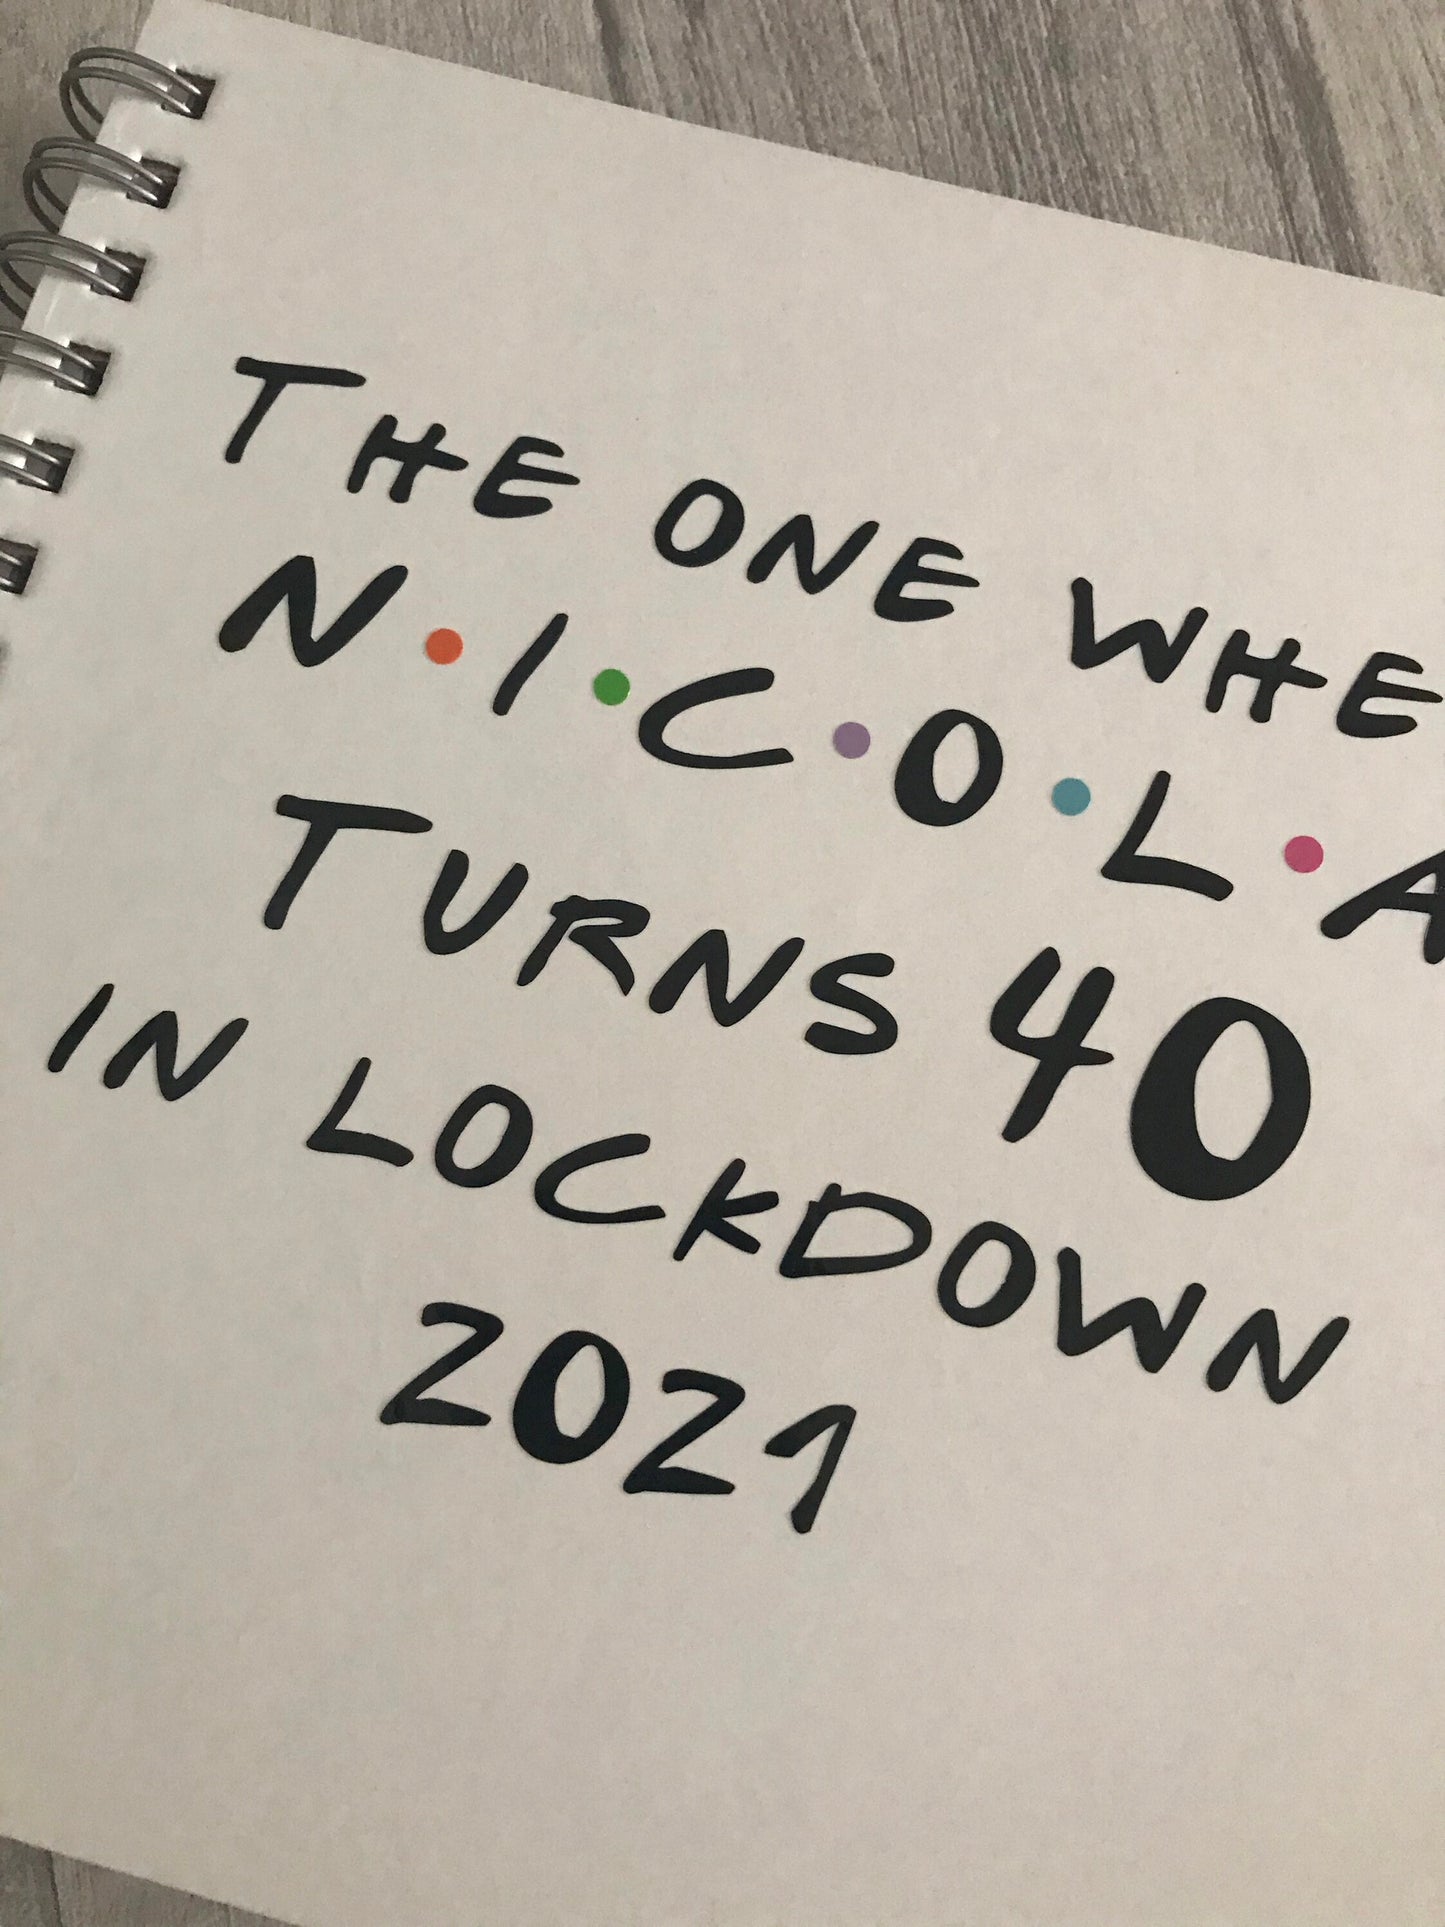 THE ONE WHE
N•I•C•O•L•A
TURNS 40
IN LOCKDOWN
2021